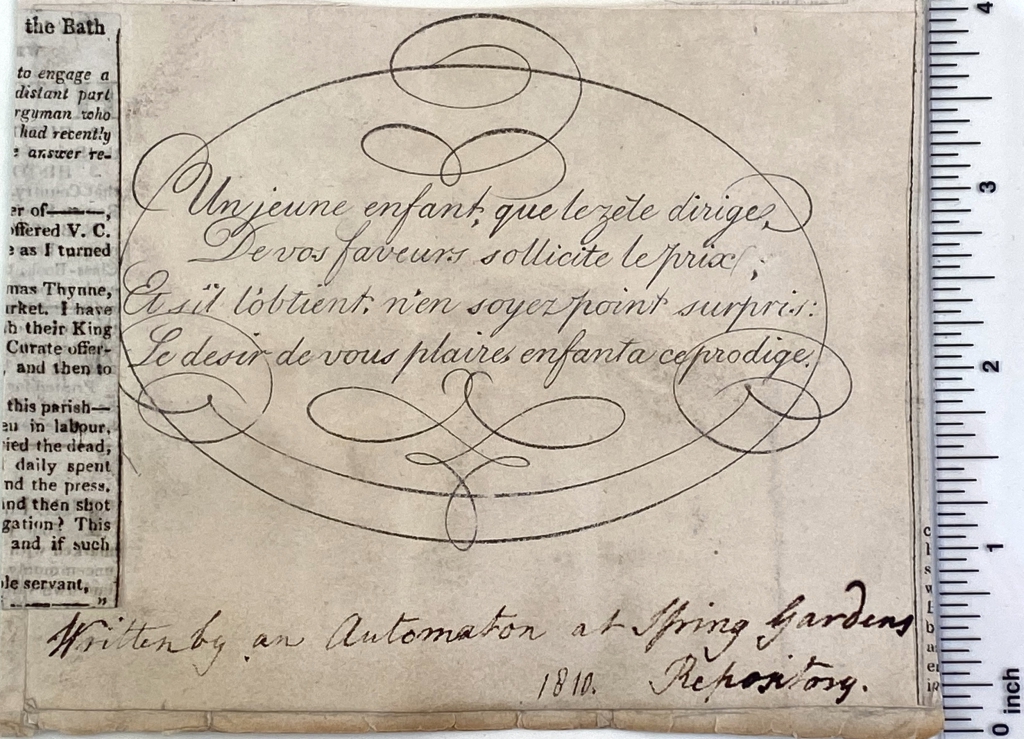 the Bath
to engage a
distant part
rgyman who
had recently
answer re-
er of———,
offered V. C.
e as I turned
mas Thynne,
arket. I have
h their King
Curate offer-
, and then to
this parish—
en in labour,
ried the dead,
daily spent
nd the press,
and then shot
gation? This
and if such
le servant,
"
Un jeune enfant, que le zéle dirige,
De vos faveurs sollicite le prix;
Et s'il l'obtient, n'en soyez point surpris:
Le desir de vous plaire, enfanta ce prodige.
Written by an Automaton at Spring Gardens
1810. Repository.
4
3
2
1
0 inch